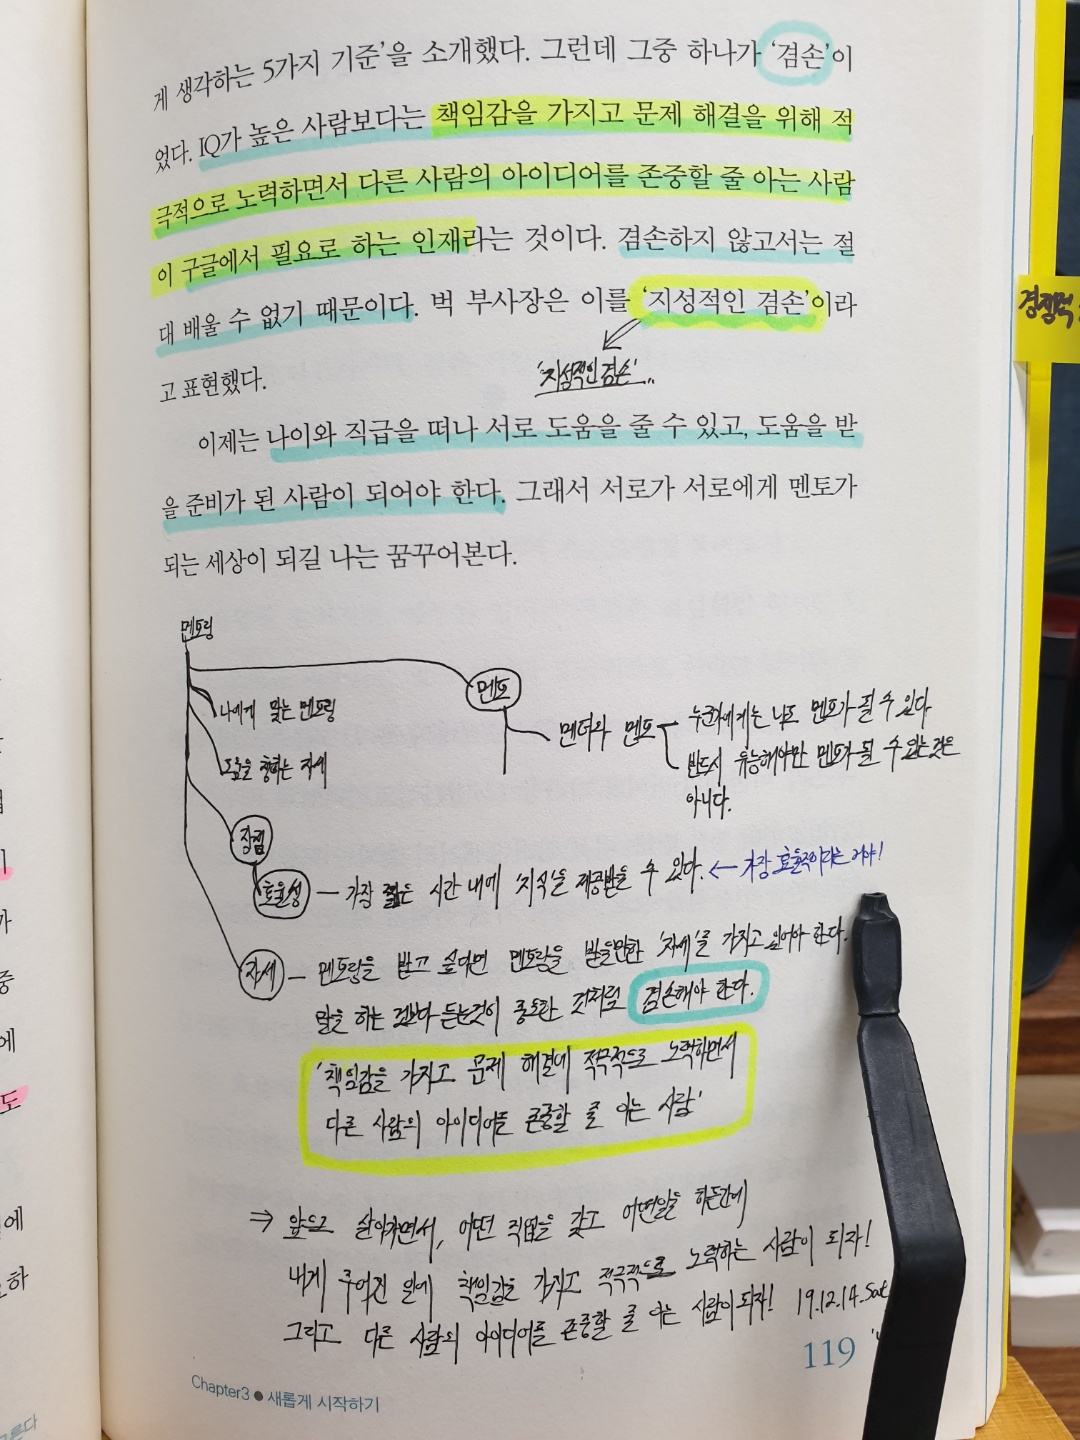 게 생각하는 5가지 기준’을 소개했다. 그런데 그중 하나가 ‘겸손’이
었다. IQ가 높은 사람보다는 책임감을 가지고 문제 해결을 위해 적
극적으로 노력하면서 다른 사람의 아이디어를 존중할 줄 아는 사람
이 구글에서 필요로 하는 인재라는 것이다. 겸손하지 않고서는 절
대 배울 수 없기 때문이다. 벅 부사장은 이를 ‘지성적인 겸손’이라
고 표현했다.
‘지성적인 겸손’...
이제는 나이와 직급을 떠나 서로 도움을 줄 수 있고, 도움을 받
을 준비가 된 사람이 되어야 한다. 그래서 서로가 서로에게 멘토가
되는 세상이 되길 나는 꿈꾸어본다.
멘토링
멘토
나에게 맞는 멘토링
멘티와 멘토
누군가에게는 나도 멘토가 될 수 있다
반드시 유능해야만 멘토가 될 수 있는것은
아니다.
도움을 청하는 자세
장점
효율성 — 가장 짧은 시간 내에 '지식'을 제공받을 수 있다. ← 가장 효율적이라는 거야!
자세 — 멘토링을 받고 싶다면 멘토링을 받을만한 '자세'를 가지고 있어야 한다.
말을 하는 것보다 듣는것이 중요한 것처럼 겸손해야 한다.
'책임감을 가지고 문제 해결에 적극적으로 노력하면서
다른 사람의 아이디어를 존중할 줄 아는 사람'
⇒ 앞으로 살아가면서, 어떤 직업을 갖고 어떤일을 하든간에
내게 주어진 일에 책임감을 가지고 적극적으로 노력하는 사람이 되자!
그리고 다른 사람의 아이디어를 존중할 줄 아는 사람이 되자! 19.12.14.Sat
119
Chapter3 ● 새롭게 시작하기